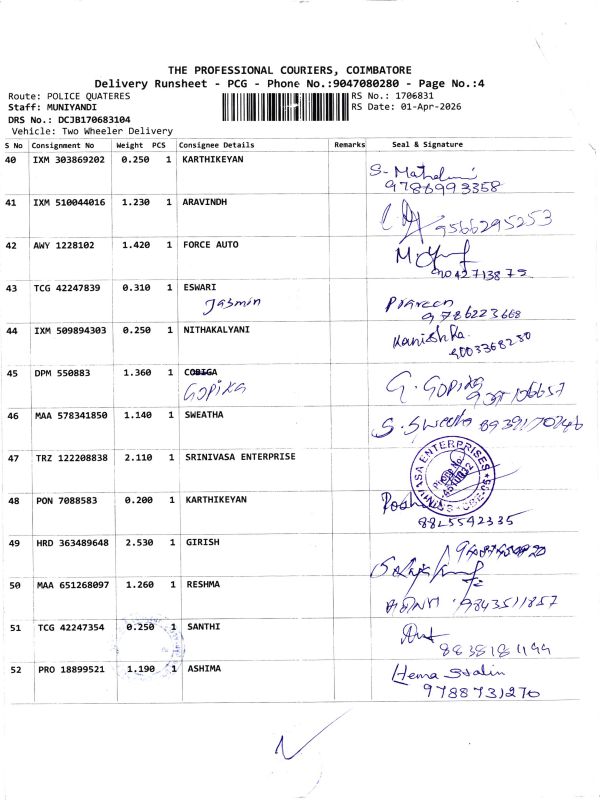 THE PROFESSIONAL COURIERS, COIMBATORE
Delivery Runsheet - PCG - Phone No.:9047080280 - Page No.:4
Route: POLICE QUATERES RS No.: 1706831
Staff: MUNIYANDI RS Date: 01-Apr-2026
DRS No.: DCJB170683104
Vehicle: Two Wheeler Delivery
S No Consignment No Weight PCS Consignee Details Remarks Seal & Signature
40 IXM 303869202 0.250 1 KARTHIKEYAN
9786993358
41 IXM 510044016 1.230 1 ARAVINDH
9566295253
42 AWY 1228102 1.420 1 FORCE AUTO
9042713875
43 TCG 42247839 0.310 1 ESWARI
Jasmin Praveen
9786223668
44 IXM 509894303 0.250 1 NITHAKALYANI
Kanishka
9003368250
45 DPM 550883 1.360 1
GOPIKA G. GOPIKA
46 MAA 578341850 1.140 1 SWEATHA
S. Sweatha
47 TRZ 122208838 2.110 1 SRINIVASA ENTERPRISE
48 PON 7088583 0.200 1 KARTHIKEYAN
8825542335
49 HRD 363489648 2.530 1 GIRISH
50 MAA 651268097 1.260 1 RESHMA
9843511857
51 TCG 42247354 0.250 1 SANTHI
52 PRO 18899521 1.190 1 ASHIMA
Hema Stalin
9788731270